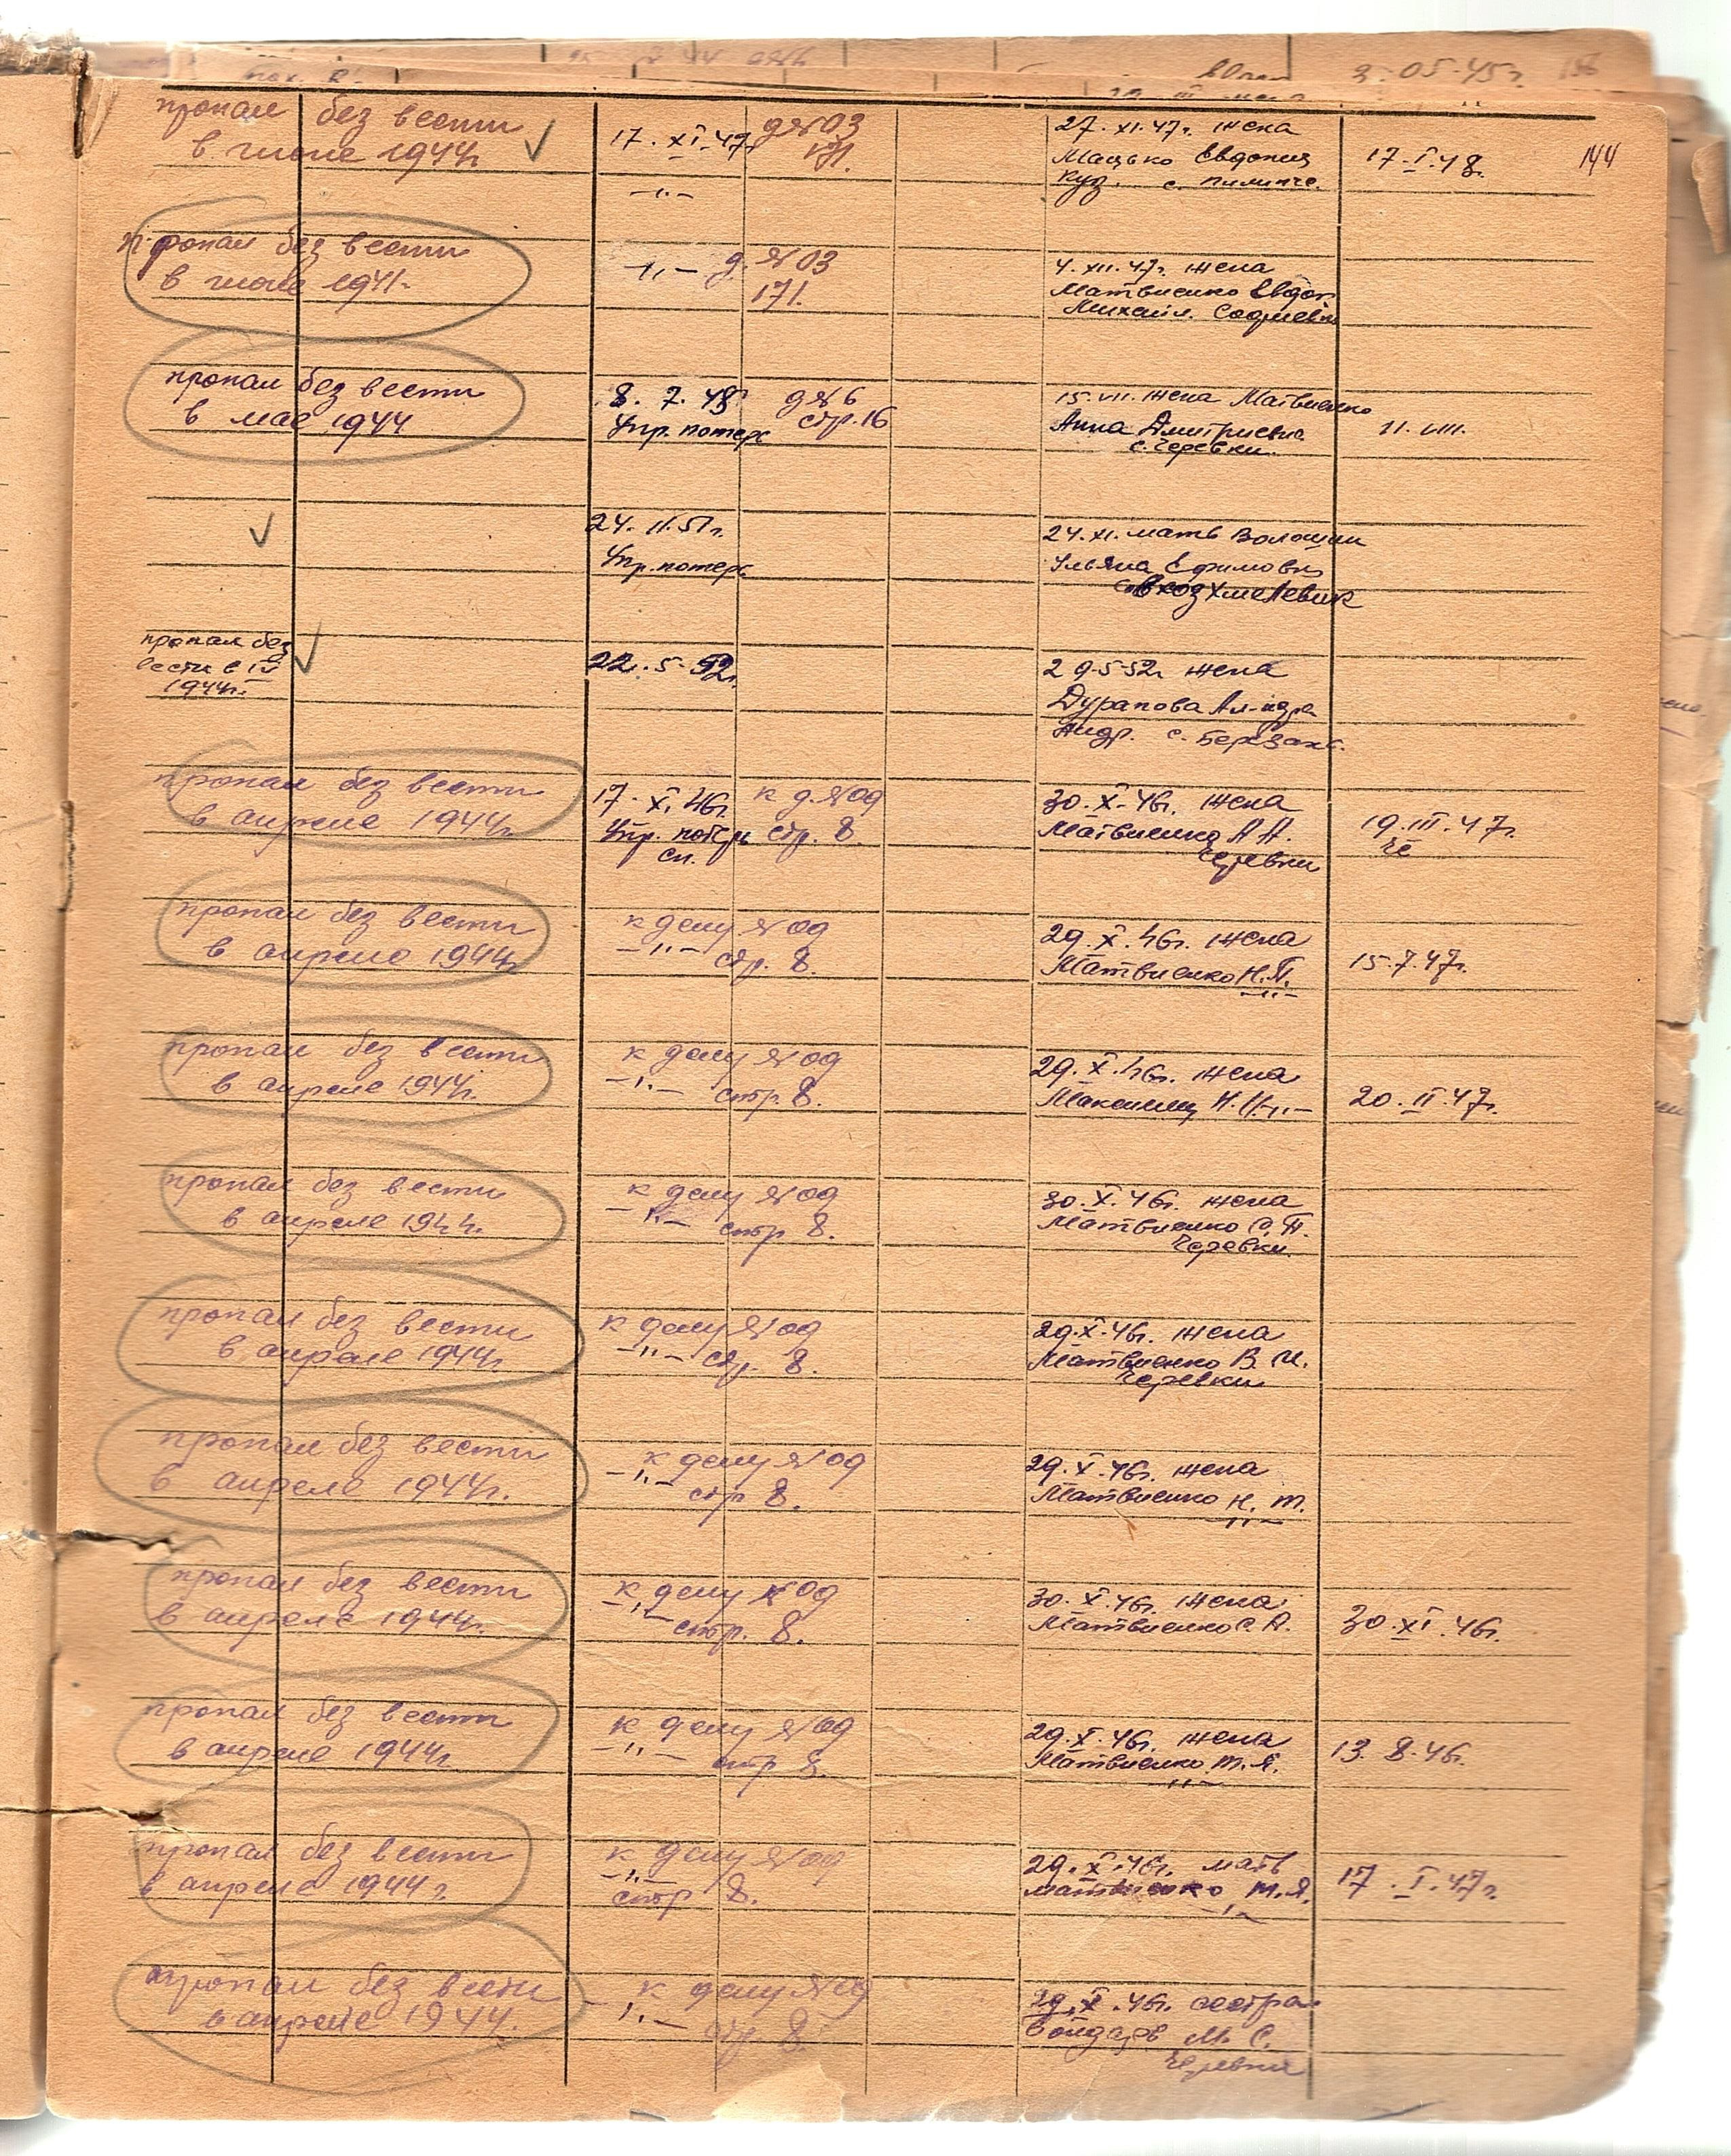 3. 05.45г. 156
144
пропал без вести
в июне 1944г
17. XI. 47г.
д№03
171.
-"-
27. XI. 47г. жена
Мацько Евдокия
Куз. с. Пилипче.
17. I. 48.
пропал без вести
в июле 1941г.
-"- д. №03
171.
4. XII. 47г. жена
Матвиенко Евдок
Михайл. Софиевка
пропал без вести
в мае 1944
8. 7. 48г
Упр. потерь
д№6
стр. 16
15. VII. жена Матвиенко
Анна Дмитриевна
с. Черевки.
11. VIII.
24. 11. 51г.
Упр. потерь
24. XI. мать Волошин
Ульяна Ефимовна
Хмелевик
пропал без
вести в IV
1944г.
22. 5. 52г.
29-5-52г жена
Дурапова Ал-ндра
Андр. с. Березанк.
пропал без вести
в апреле 1944г
17. XI. 46г.
Упр. потерь
сп.
к д. №09
стр. 8.
30. X. 46г. жена
Матвиенко А А.
Черевки
19. III. 47г.
че
пропал без вести
в апреле 1944г
к делу №09
-"- стр. 8.
29. X. 46г. жена
Матвиенко Н. П.
-"-
15. 7. 47г.
пропал без вести
в апреле 1944г.
к делу №09
-"- стр. 8.
29. X. 46г. жена
Максимец Н. И. -"-
20. II. 47г.
пропал без вести
в апреле 1944г.
к делу №09
-"- стр 8.
30. X. 46г. жена
Матвиенко О. П.
Черевки.
пропал без вести
в апреле 1944г
к делу №09
-"- стр. 8.
29. X. 46г. жена
Матвиенко В. И.
Черевки
пропал без вести
в апреле 1944г.
к делу №09
-"- стр 8.
29. X. 46г. жена
Матвиенко Н. Т.
-"-
пропал без вести
в апреле 1944г.
к делу №09
-"- стр. 8.
30. X. 46г. жена
Матвиенко С. А.
30. XI. 46г.
пропал без вести
в апреле 1944г
к делу №09
-"- стр 8.
29. X. 46г. жена
Матвиенко Т. Я.
-"-
13. 8. 46г.
пропал без вести
в апреле 1944г
к делу №09
-"-
стр 8.
29. X. 46г. мать
Матвиенко М. Я.
-"-
17. I. 47г.
пропал без вести
в апреле 1944г.
к делу №09
-"- стр. 8.
29. X. 46г. сестра
Бондарь М. С.
Черевки